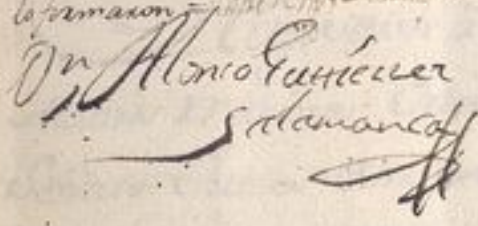 lo firmaron =
Dn Alonso Gutierrez
Salamanca